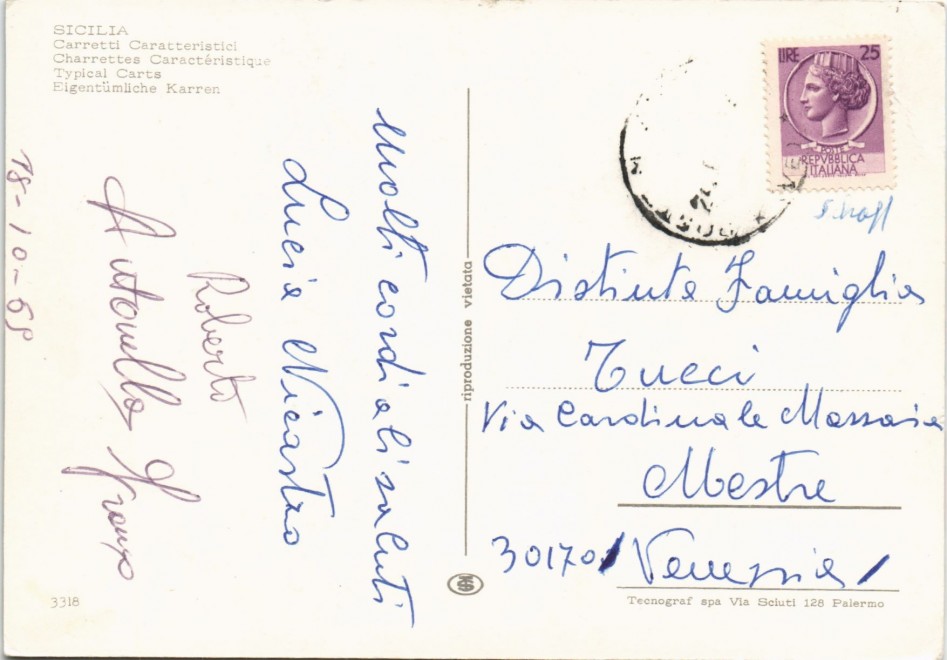 SICILIA
Carretti Caratteristici
Charrettes Caractéristique
Typical Carts
Eigentümliche Karren
molti cordiali saluti
Lucia Nicastro
Roberto
Antonella Franzo
18-10-69
riproduzione vietata
LIRE 25
POSTE
REPVBBLICA
ITALIANA
Distinta Famiglia
Tucci
Via Cardinale Massaia
Mestre
30170 / Venezia /
3318
Tecnograf spa Via Sciuti 128 Palermo